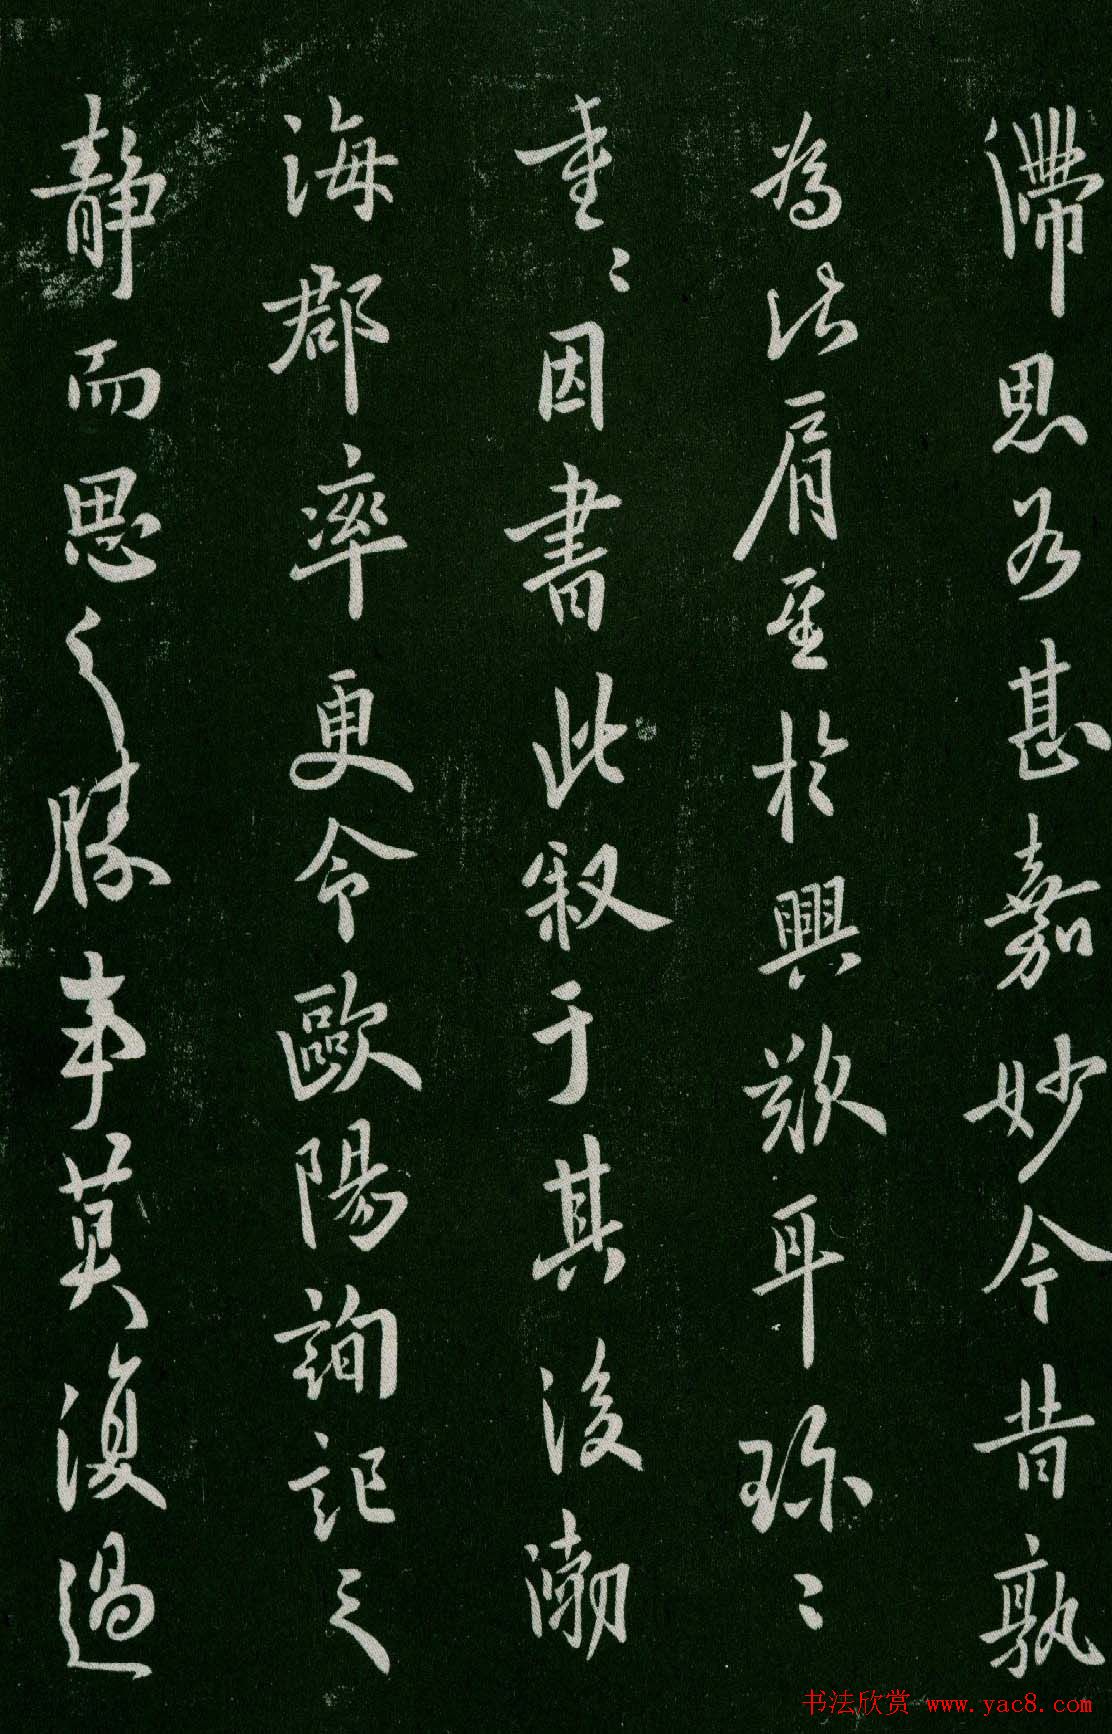 滯思甚嘉妙今昔孰
為比肩至於興歎耳珍〻
重〻因書此叙于其後渤
海郡率更令歐陽詢記之
靜而思之勝事莫復過
书法欣赏 www.yac8.com